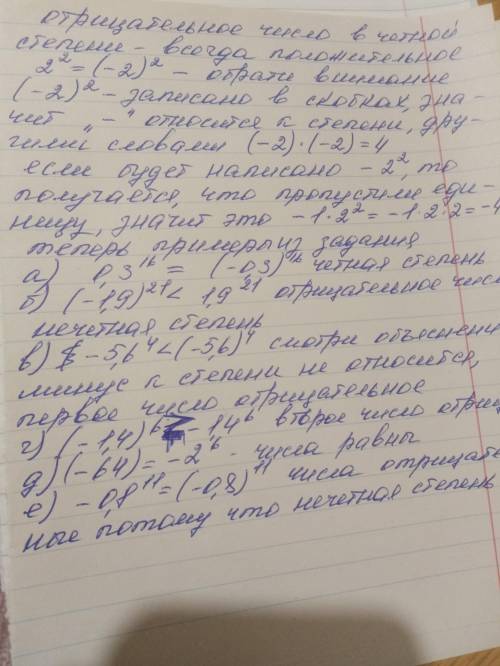 отрицательное число в четной
степени - всегда положительное
2² = (-2)² - обрати внимание
(-2)² - записано в скобках, зна-
чит „ - " относится к степени, дру-
гими словами (-2)·(-2)=4
если будет написано - 2², то
получается, что пропустили еди-
ницу, значит это -1·2² = -1·2·2=-4
теперь примеры из задания
а) 0,3¹⁶ = (-0,3)¹⁶ четная степень
б) (-1,9)²¹ < 1,9²¹ отрицательное числ
нечетная степень
в) - 5,6⁴ < (-5,6)⁴ смотри объяснени
минус к степени не относится,
первое число отрицательное
г) (-1,4)⁶ > -1,4⁶ второе число отриц
д) (-64) = -2⁶ - числа равны
е) -0,8¹¹ = (-0,8)¹¹ числа отрицате
ные потому что нечетная степень